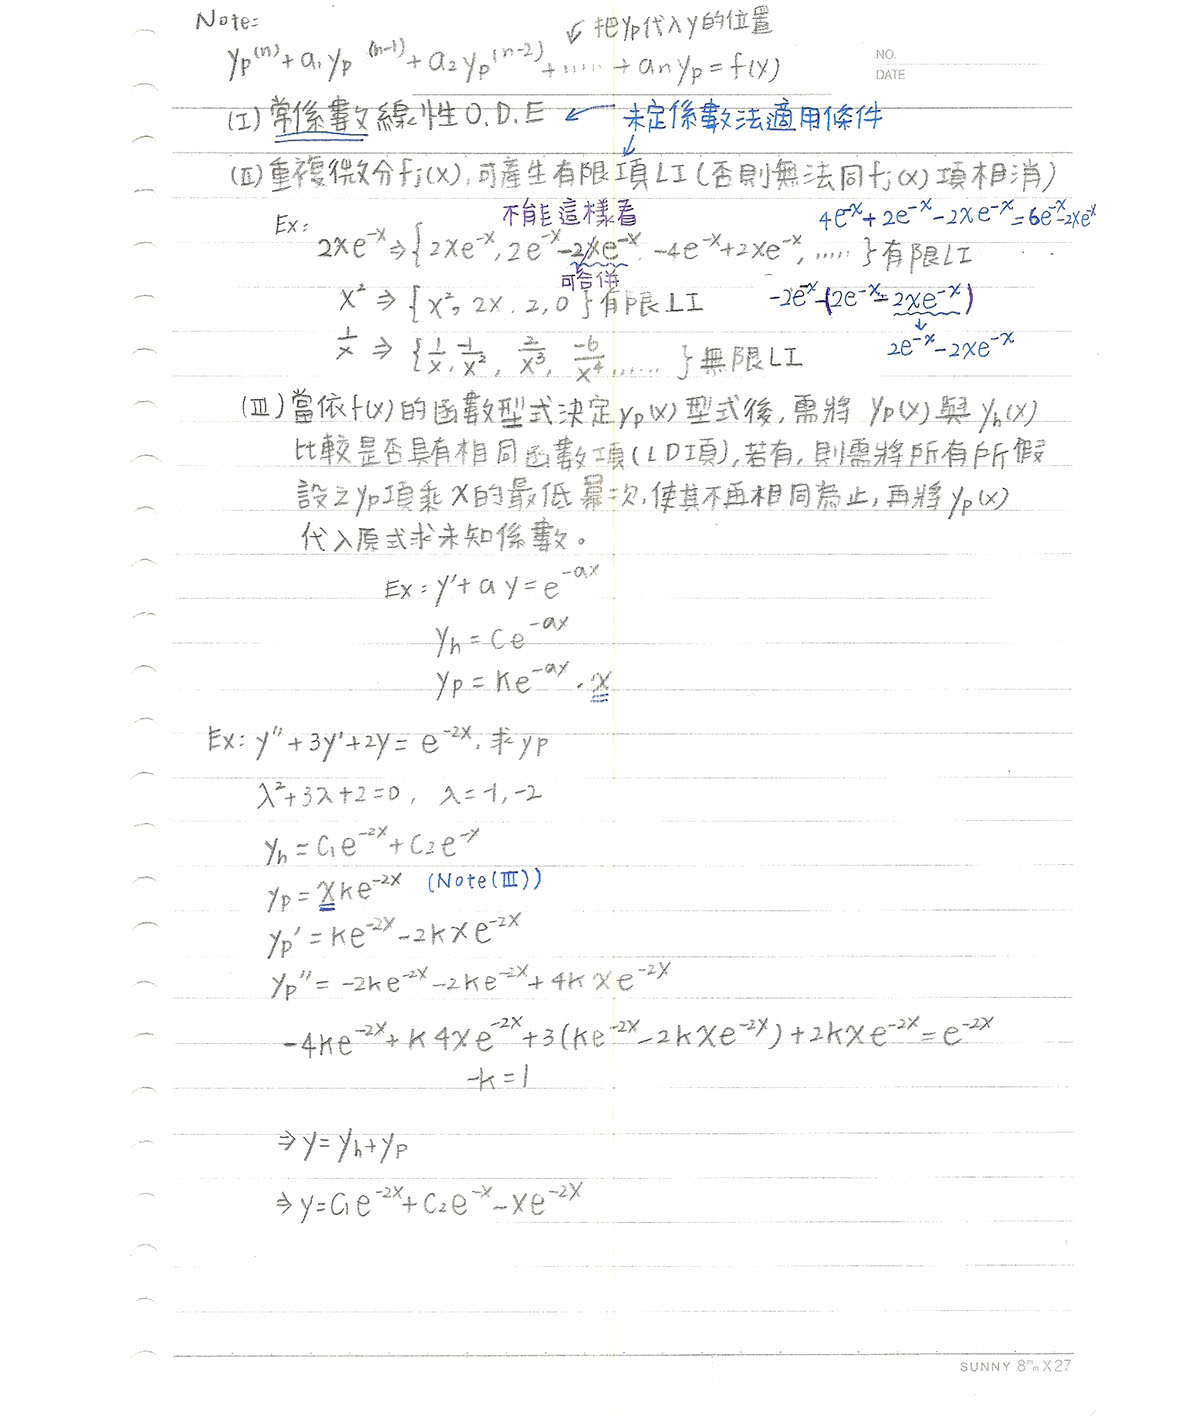 Note:
↙ 把yp代入y的位置
yp⁽ⁿ⁾+a₁yp⁽ⁿ⁻¹⁾+a₂yp⁽ⁿ⁻²⁾+……+anyp=f(x)
NO.
DATE
(I) 常係數線性O.D.E ← 未定係數法適用條件
(II) 重複微分fj(x),可產生有限項LI(否則無法同fj(x)項相消)
不能這樣看
4e^-x+2e^-x-2xe^-x=6e^-x-2xe^-x
Ex: 2xe^-x⇒{2xe^-x, 2e^-x-2xe^-x, -4e^-x+2xe^-x, ……}有限LI
可合併
x²⇒{x², 2x, 2, 0}有限LI
-2e^-x-(2e^-x-2xe^-x)
2e^-x-2xe^-x
1/x⇒{1/x, -1/x², 2/x³, -6/x⁴, ……}無限LI
(III) 當依f(x)的函數型式決定yp(x)型式後,需將 yp(x)與yh(x)
比較是否具有相同函數項(LD項),若有,則需將所有所假
設之yp項乘x的最低冪次,使其不再相同為止,再將yp(x)
代入原式求未知係數。
Ex: y'+ay=e^-ax
yh=Ce^-ax
yp=Ke^-ax·x
Ex: y''+3y'+2y=e^-2x, 求yp
λ²+3λ+2=0, λ=-1,-2
yh=C₁e^-2x+C₂e^-x
yp=xke^-2x (Note(III))
yp'=ke^-2x-2kxe^-2x
yp''=-2ke^-2x-2ke^-2x+4kxe^-2x
-4ke^-2x+k4xe^-2x+3(ke^-2x-2kxe^-2x)+2kxe^-2x=e^-2x
-k=1
⇒y=yh+yp
⇒y=C₁e^-2x+C₂e^-x-xe^-2x
SUNNY 8mm X 27